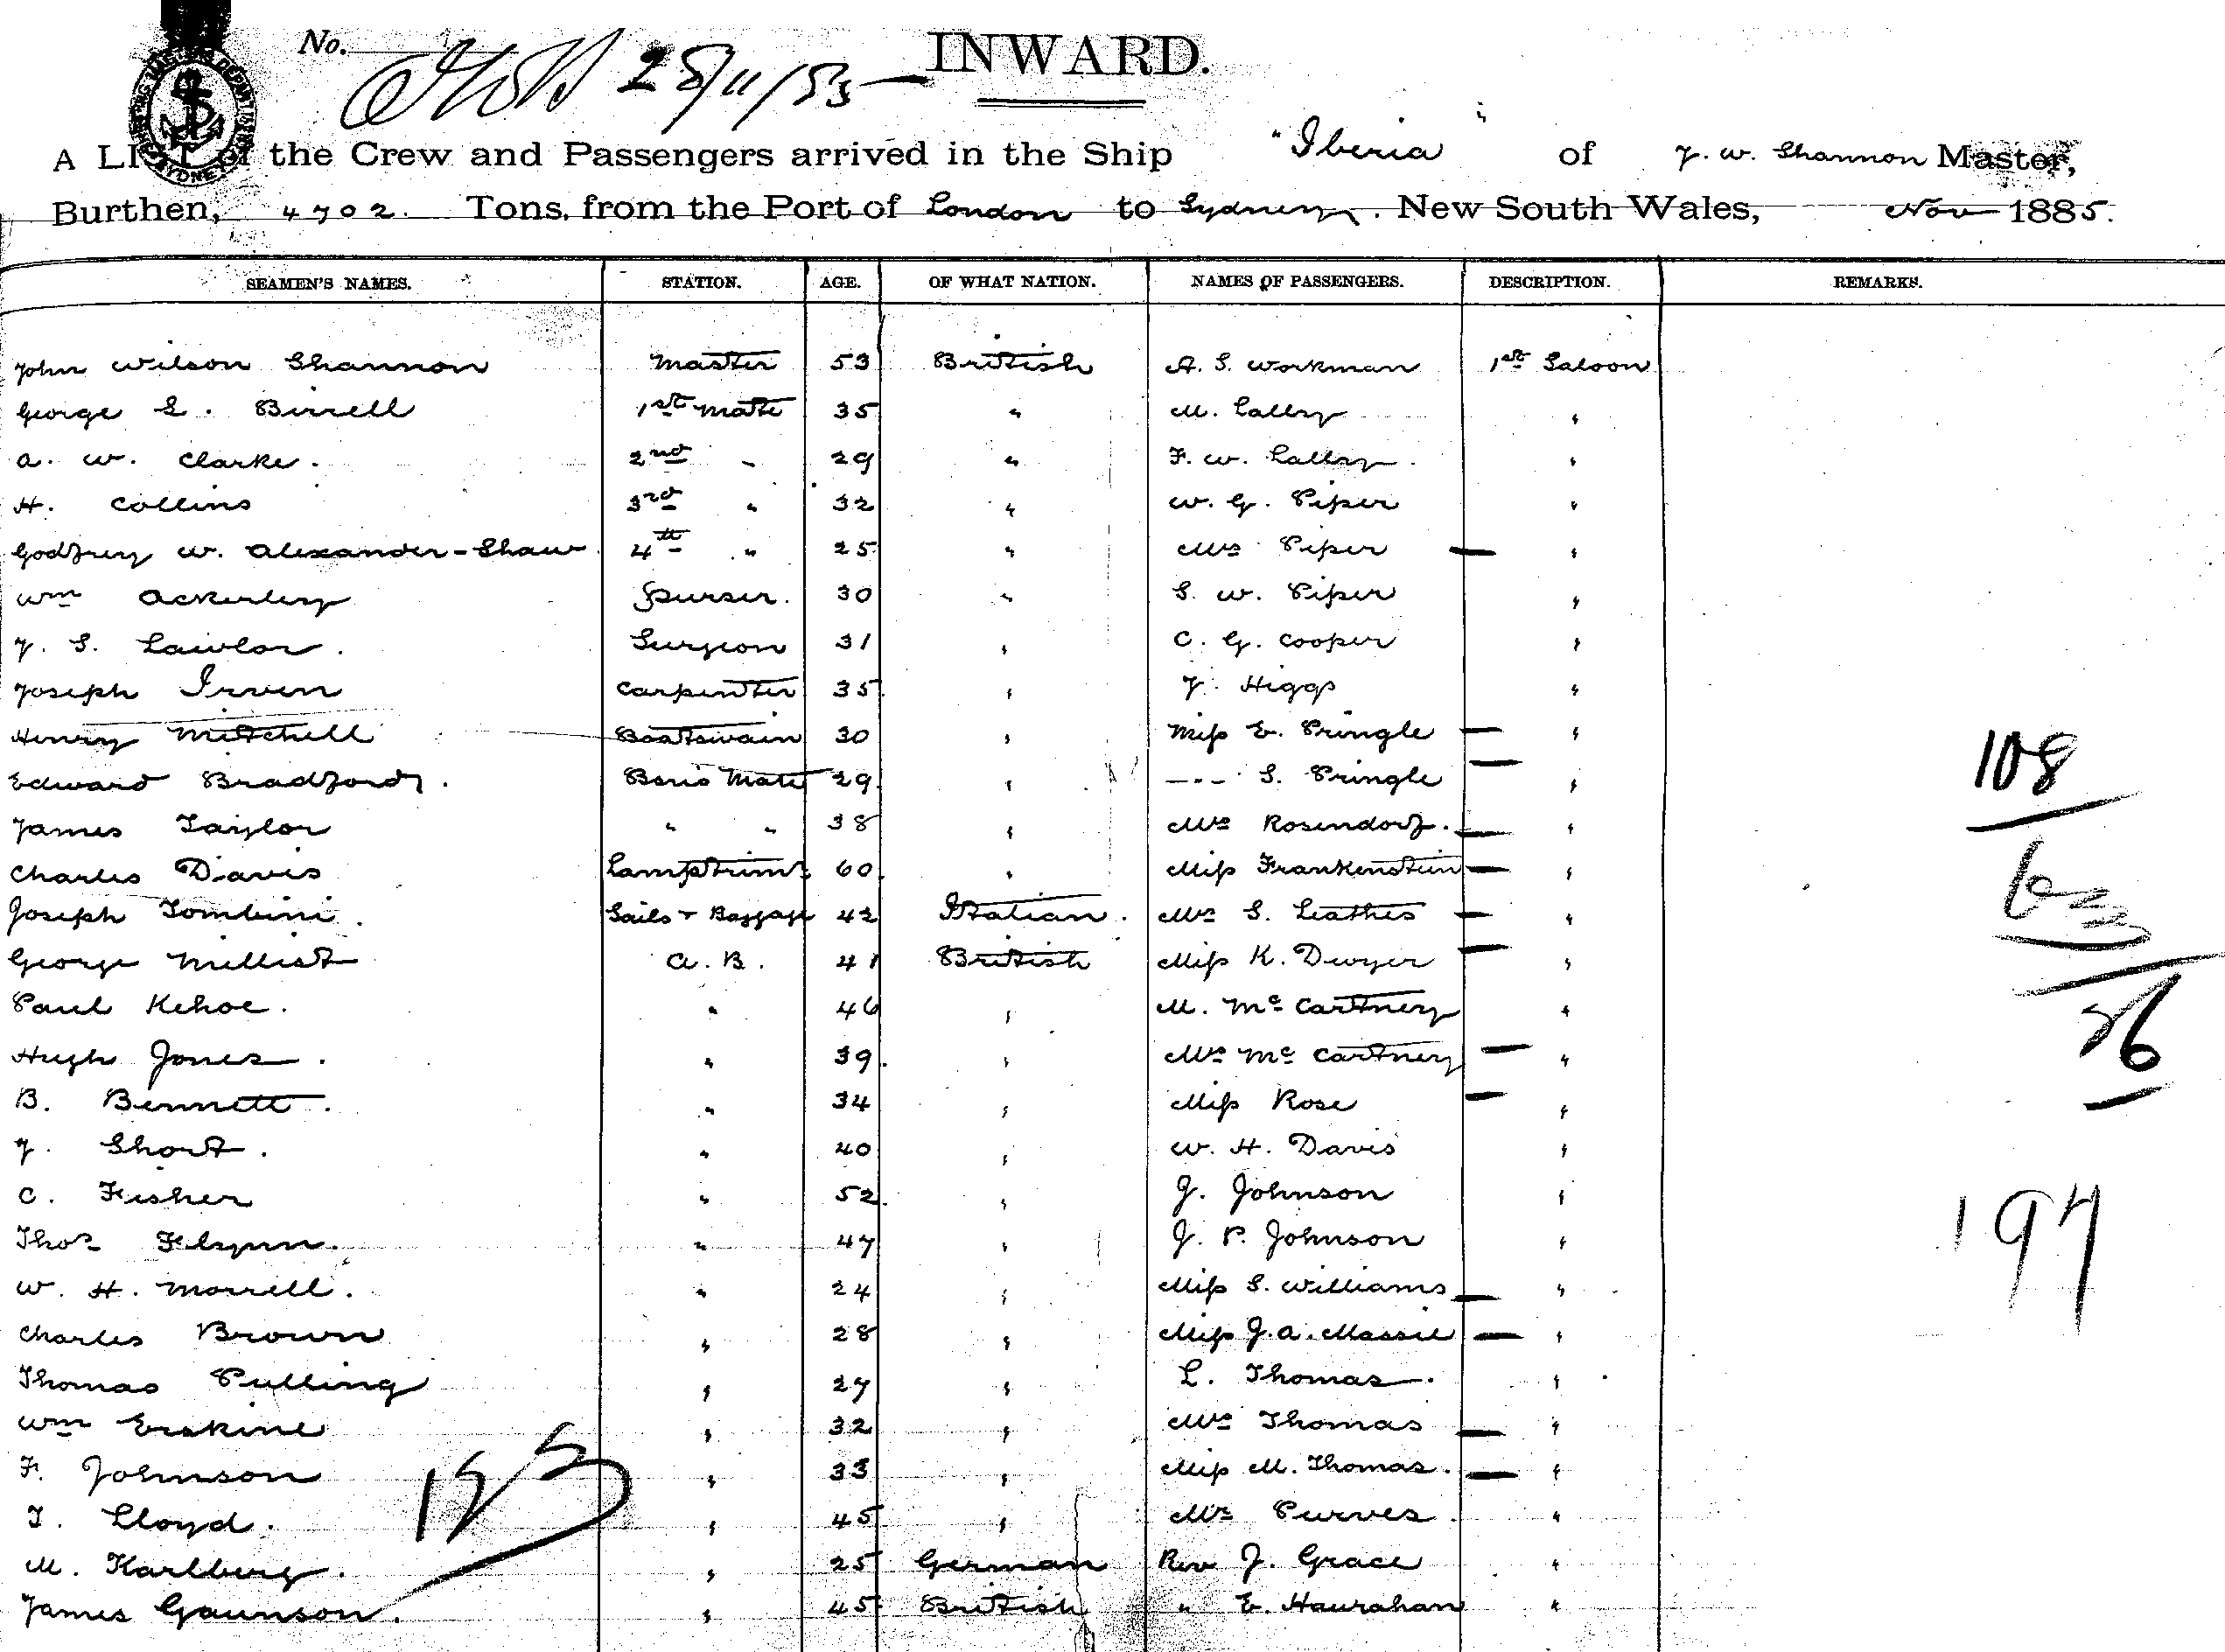 No. 28/11/85 INWARD.
A LIST of the Crew and Passengers arrived in the Ship "Iberia" of J. W. Shannon Master,
Burthen, 4702. Tons, from the Port of London to Sydney, New South Wales, Nov 1885.
SEAMEN'S NAMES. STATION. AGE. OF WHAT NATION. NAMES OF PASSENGERS. DESCRIPTION. REMARKS.
John Wilson Shannon Master 53 British A. S. Workman 1st Saloon
George S. Birrell 1st Mate 35 " M. Lally "
A. W. Clarke. 2nd " 29 " F. W. Lally. "
H. Collins 3rd " 32 " W. G. Piper "
Godfrey W. Alexander-Shaw 4th " 25 " Mrs Piper — "
Wm Ackerley Purser. 30 " S. W. Piper "
J. S. Lawlor. Surgeon 31 " C. G. Cooper "
Joseph Irven Carpenter 35 " J. Higgs "
Henry Mitchell Boatswain 30 " Miss E. Pringle — "
Edward Bradford. Bosns Mate 29 " --- S. Pringle — "
108
James Taylor " " 38 " Mrs Rosendorf. — "
Charles Davis Lamptrimr 60 " Miss Frankenstein — "
Joseph Tombini. Sails & Baggage 42 Italian. Mrs S. Leathes — "
George Millist A. B. 41 British Miss K. Dwyer — "
Paul Kehoe. " 46 " M. McCartney "
Hugh Jones. " 39. " Mrs McCartney — "
B. Bennett. " 34 " Miss Rose — "
J. Short. " 40 " W. H. Davis "
C. Fisher " 52. " J. Johnson "
Thos Flynn. " 47 " J. P. Johnson "
197
W. H. Morrell. " 24 " Miss S. Williams — "
Charles Brown " 28 " Miss J. A. Massie — "
Thomas Pulling " 27 " L. Thomas. "
Wm Erskine " 32 " Mrs Thomas — "
F. Johnson " 33 " Miss M. Thomas. — "
T. Lloyd. " 45 " Mrs Purves. "
M. Karlberg. " 25 German Rev J. Grace "
James Gaunson. " 45 British " E. Haurahan "